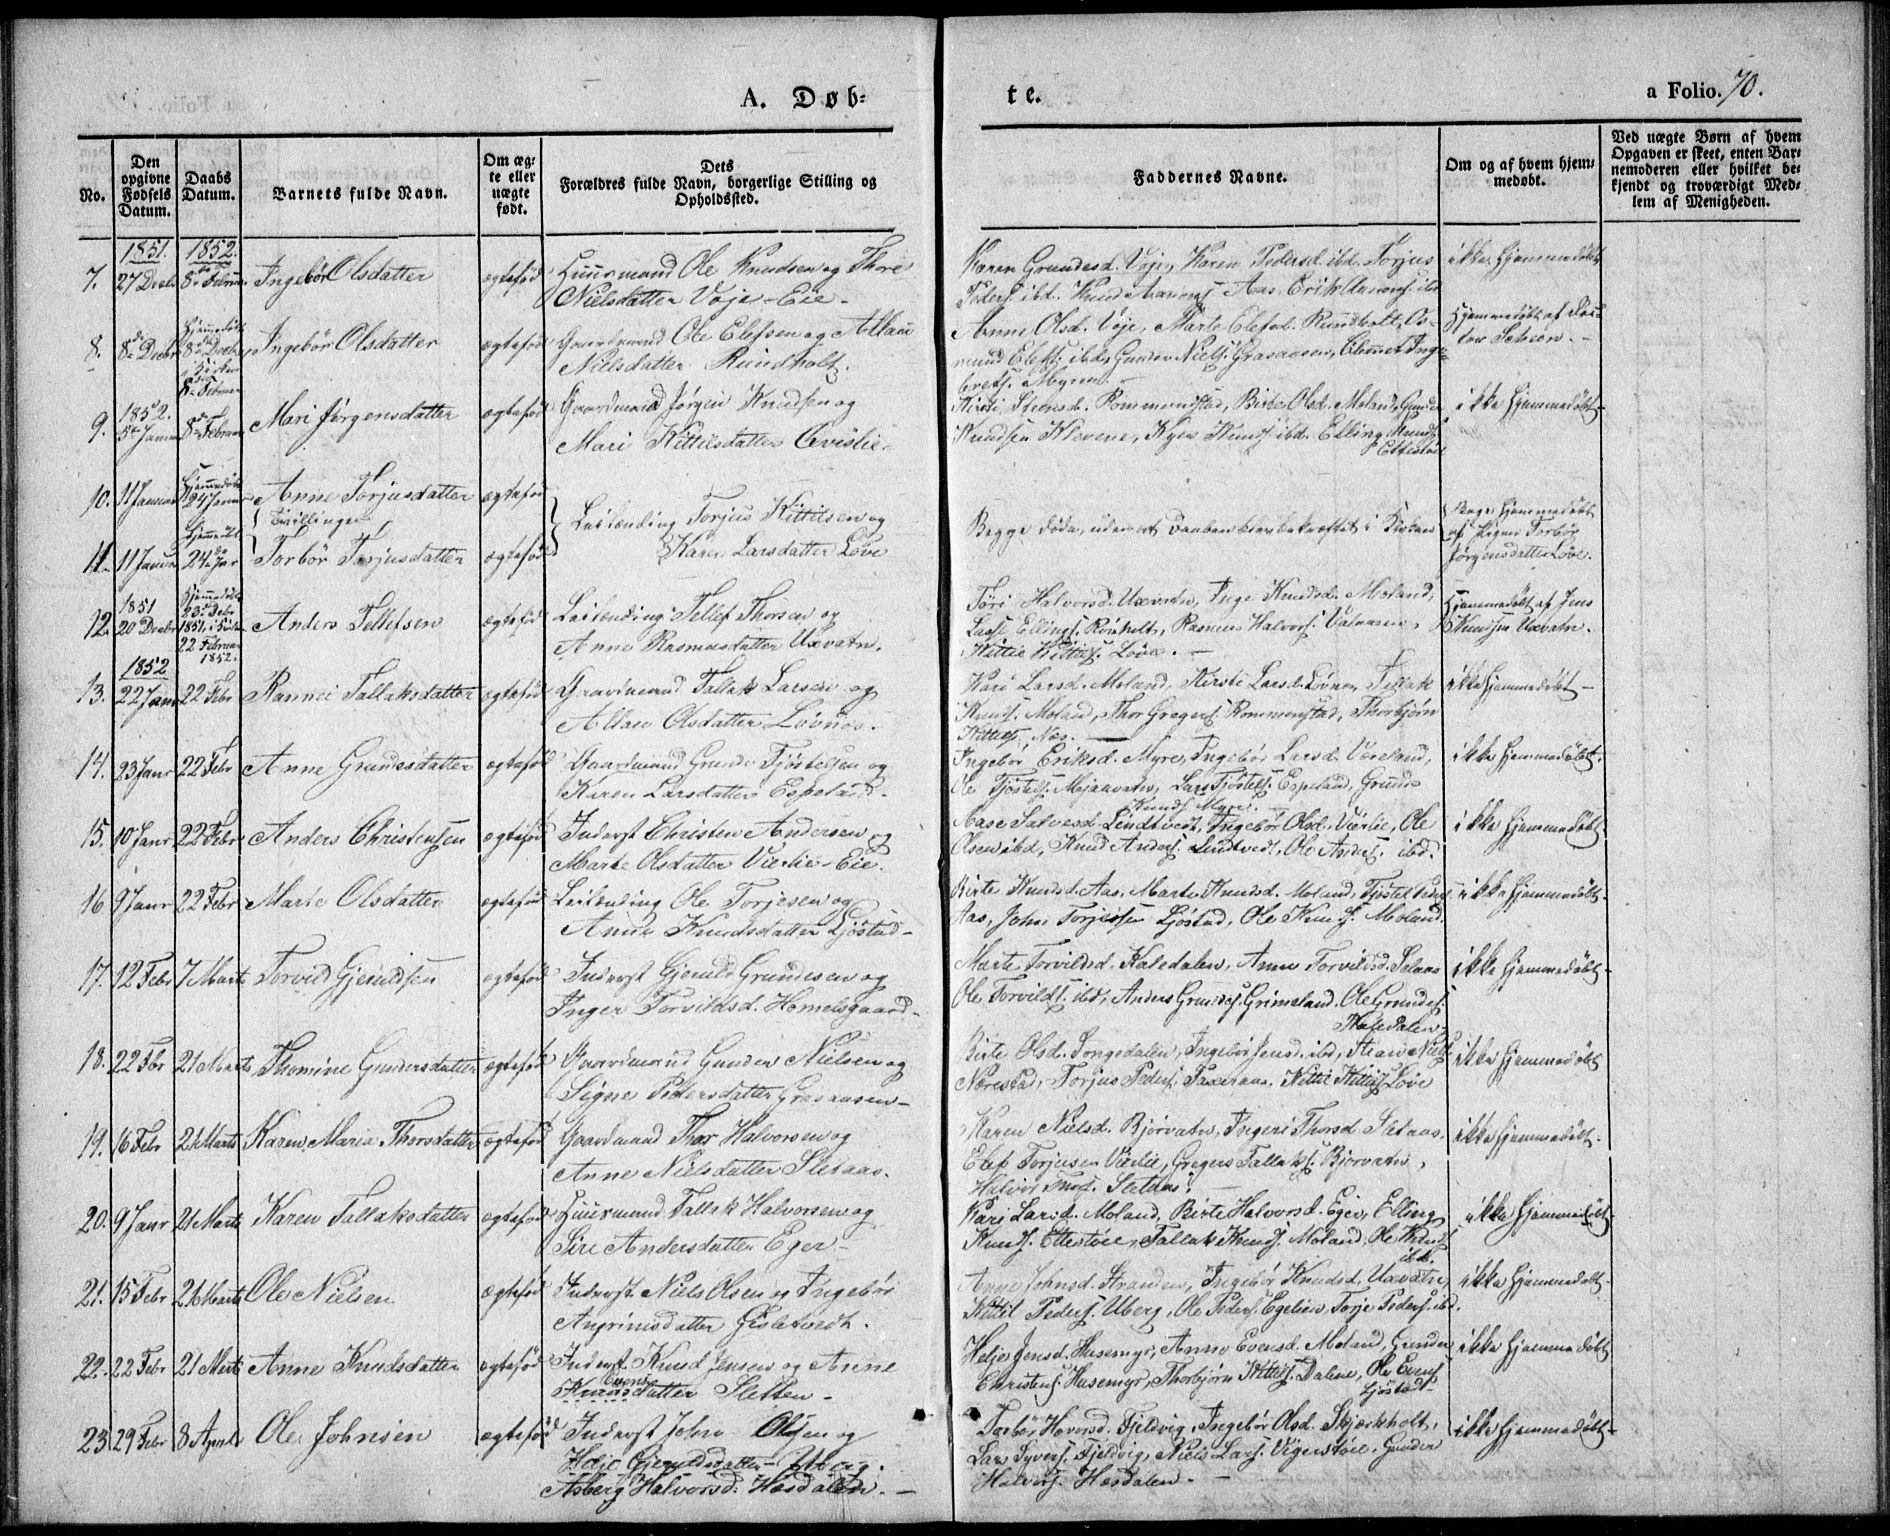 A. Døb-
te.
a Folio. 70.
No.
Den opgivne Fødsels Datum.
Daabs Datum.
Barnets fulde Navn.
Om ægte eller uægte født.
Dets Forældres fulde Navn, borgerlige Stilling og Opholdssted.
Faddernes Navne.
Om og af hvem hjemmedøbt.
Ved uægte Børn af hvem Opgaven er skeet, enten Barnemoderen eller hvilket bekjendt og troværdigt Medlem af Menigheden.
1851. 1852.
7. 27 Decbr 8de Februar Ingebør Olsdatter ægtefød Huusmand Ole Knudsen og Thore
Nielsdatter Voje-Eie.
Karen Grundesd. Voje, Karen Pedersd. ibd. Torjus
Peders. ibd. Knud Aanons. Aas. Erik Aanons. ibd
ikke hjemmedøbt
8. 8de Decbr Hjemmedøbt 8de Decbr i Kirken 8de Februar Ingebør Olsdatter ægtefød Gaardmand Ole Elefsen og Allau
Nielsdatter Rundholt.
Anne Olsd. Voje, Marte Elefsd. Rundholt, Os-
mund Elefs. ibd, Gunder Niels. Graaasen, Clemet Inge-
brets. Myren.
Hjemmedøbt af Doc-
tor Scheen.
1852.
9. 5te Januar 8de Februar Mari Jørgensdatter ægtefød Gaardmand Jørgen Knudsen og
Mari Kittilsdatter
Kirsti Steensd. Rommundstad, Birte Olsd. Moland, Gunder
Knudsen Klevene, Kyer Knuds. ibd. Elling Knuds.
Ettestøel
ikke hjemmedøbt
10. 11 Januar Hjemmedøbt 24 Januar Anne Torjusdatter ægtefød
Tvillinger
11. 11 Januar Hjemmedøbt 24de Jar Torbør Torjusdatter ægtefød
Leilænding Torjus Kittilsen og
Karen Larsdatter Løve
Begge døde, uden at Daaben blev bekræftet i Kirken
Begge hjemmedøbt
af Pigen Torbør
Jørgensdatter Løve.
1851
12. 20 Decbr Hjemmedøbt 23de Debr 1851, i Kirken 22 Februar 1852. Anders Tellefsen ægtefød Leilænding Tellef Thorsen og
Anne Rasmusdatter Uxvatn.
Tøri Halvorsd. Uxvatn, Inge Knudsd. Moland,
Lasse Ellings. Rønholt, Rasmus Halvors. Valaasen,
Kittil Kittils. Løve.
Hjemmedøbt af Jens
Knudsen Uxvatn.
1852
13. 22 Janr 22 Febr Rannei Tallaksdatter Gaardmand Tallak Larsen og
Allau Olsdatter Løvnæs.
Kari Larsd. Moland, Kirsti Larsd. Løvnæs, Tellak
Knuds. Moland, Thor Gregers. Rommenstad, Thorbjørn
Kittils. Næs.
ikke hjemmedøbt
14. 23 Janr 22 Febr Anne Grundesdatter ægtefød Gaardmand Grunde Tjøstelsen og
Karen Larsdatter Espeland.
Ingebør Eriksd. Myre, Ingebør Larsd. Voreland,
Ole Tjøstels. Mjaavatn, Lars Tjøstels. Espeland, Grunde
Knuds. Myre.
ikke hjemmedøbt.
15. 10 Janr 22 Febr Anders Christensen ægtefød Inderst Christen Andersen og
Marte Olsdatter Vierlie-Eie.
Aase Salvesd. Lindtvedt, Ingebør Olsd. Vierlie, Ole
Olsen ibd, Knud Anders. Lindtvedt, Ole Anders. ibd.
ikke hjemmedøbt
16 9 Janr 22 Febr Marte Olsdatter ægtefød Leilænding Ole Torjesen og
Anne Knudsdatter Ljøstad
Birte Knudsd. Aas, Marte Knudsd. Moland, Tjøstel Peders.
Aas, John Torjesen Ljøstad, Ole Knuds. Moland.
ikke hjemmedøbt
17. 12 Febr 7 Marts Torvild Gjeruldsen ægtefød Inderst Gjeruld Grundesen og
Inger Torvildsd. Homelsgaard
Marte Torvildsd. Kaledalen, Anne Torvildsd. Selaas
Ole Torvilds. ibd, Anders Grundes. Grimeland, Ole Grundes.
Kaledalen
ikke hjemmedøbt
18. 22 Fbr 21 Marts Thomine Gundersdatter ægtefød Gaardmand Gunder Nielsen og
Signe Pedersdatter Graaasen
Birte Olsd. Songedalen, Ingebør Jensd. ibd, Stean Niels.
Nærestad, Torjus Peders. Taxeraas, Kittil Kittils. Løve
ikke hjemmedøbt
19. 6 Febr 21 Marts Karen Maria Thorsdatter ægtefød Gaardmand Thor Halvorsen og
Anne Nielsdatter Sletaas.
Karen Nielsd. Bjorvatn, Ingeri Thorsd. Sletaas.
Elef Torjusen Vierlie, Gregers Tallaks. Bjorvatn,
Halvor Thors. Sletaas.
ikke hjemmedøbt
20. 9 Janr 21 Marts Karen Tallaksdatter ægtefød Huusmand Tallak Halvorsen og
Siri Andersdatter Eger
Kari Larsd. Moland, Birte Halvorsd. Eger, Elling
Knuds. Ettestøel, Tallak Knuds. Moland, Ole Knuds.
ibd.
ikke hjemmedøbt
21. 15 Febr 21 Marts Ole Nielsen ægtefød Inderst Niels Olsen og Ingebør
Asgrimsdatter Gisletvedt.
Anne Johnsd. Stranden, Ingebør Knudsd. Uxvatn,
Kittil Peders. Uberg, Ole Peders. Egelien, Torje Peders. ibd.
ikke hjemmedøbt
22. 22 Febr 21 Marts Anne Knudsdatter ægtefød Inderst Knud Jensen og Anne
Evens
Knudsdatter Sletten
Helje Jensd. Hasemyr, Anne Evensd. Moland, Gunder
Christens. Hasemyr, Thorbjørn Kittils. Dalene, Ole Evens.
Ljøstad
ikke hjemmedøbt
23 29 Febr 8 April Ole Johnsen ægtefød Inderst John Olsen og
Helje Gjeruldsdatter Uberg.
Asberg Halvorsd. Hasdalen.
Torbør Haversd. Fjeldvig, Ingebør Olsd. Skjærkholt,
Lars Syvers. Fjeldvig, Niels Lars. Vigerstøel, Gunder
Halvors. Hasdalen.
ikke hjemmedøbt